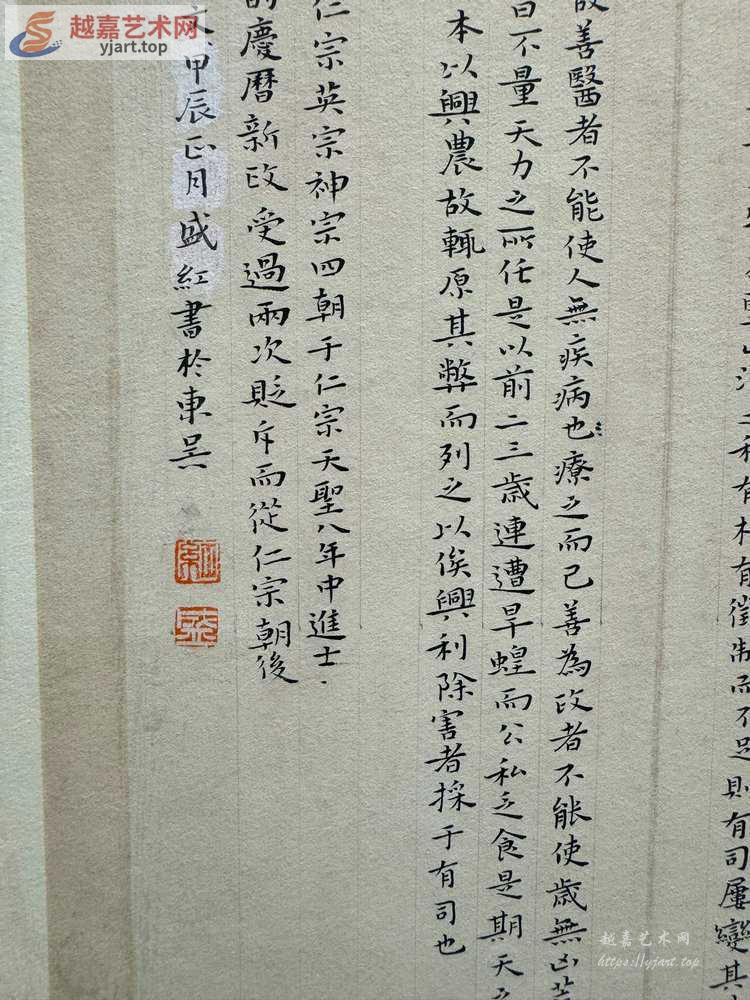 越嘉艺术网
yjart.top
有徵制而不足則有司屢變其
故善醫者不能使人無疾病也療之而已善為政者不能使歲無凶
曰不量天力之所任是以前二三歲連遭旱蝗而公私乏食是期天之
本以興農故輒原其弊而列之以俟興利除害者採于有司也
仁宗英宗神宗四朝于仁宗天聖八年中進士.
的慶曆新政受過兩次貶斥而從仁宗朝後
甲辰正月盛紅書於東吳
越嘉艺术网
https://yjart.top